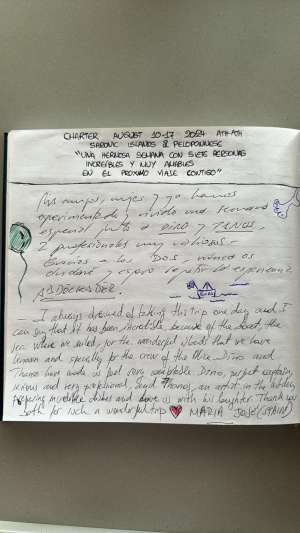 CHARTER AUGUST 10-17 2024 ATH-ATH
SARONIC ISLANDS & PELOPONNESE
"UNA HERMOSA SEMANA CON SIETE PERSONAS
INCREÍBLES Y MUY AMABLES
EN EL PRÓXIMO VIAJE CONTIGO"
Mis amigos, mujer y yo hemos
experimentado y vivido una semana
especial junto a DINO y
2 profesionales muy valiosos.
Gracias a los DOS, nunca os
olvidaré y espero repetir la experiencia
I always dreamed of taking this trip one day and I
can say that it has been incredible because of the boat, the
sea where we sailed, for the wonderful islands that we have
known and specially for the crew of the Dino and
Thanos have made us feel very comfortable. Dino, perfect captain,
serious and very professional, and Thanos, an artist in the kitchen
preparing incredible dishes and us with his laughter. Thank you
both for such a wonderful trip MARIA JOSÉ (SPAIN)